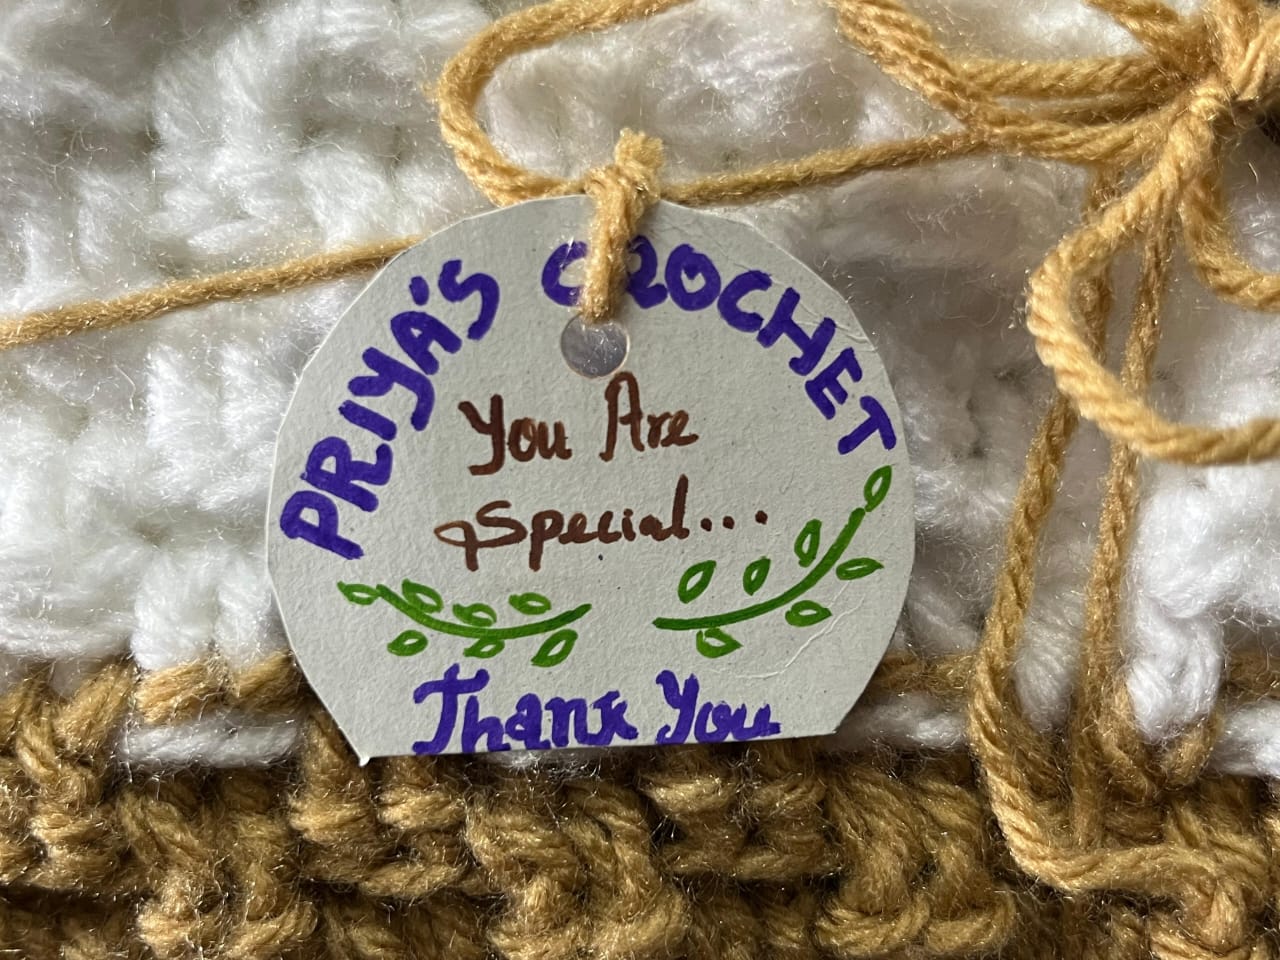 PRIYA'S CROCHET
You Are
Special...
Thank You